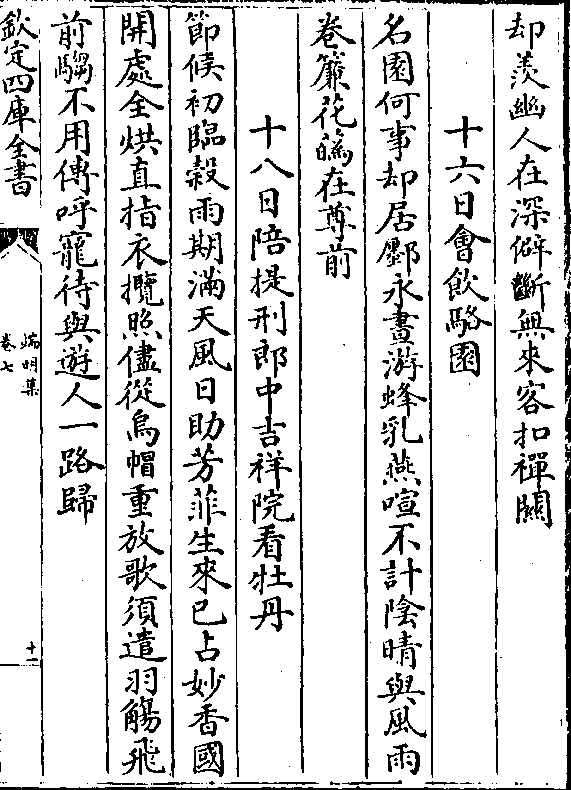 却羨幽人在深僻斷無來客扣禪關
十六日會飲駱園
名園何事却居酆永晝游蜂乳燕喧不計陰晴與風雨
卷簾花𦢊在尊前
十八日陪提刑郎中吉祥院看牡丹
節候初臨穀雨期滿天風日助芳菲生來已占妙香國
開處全烘直指衣攬照儘從烏帽重放歌須遣羽觴飛
前騶不用傳呼寵待與遊人一路歸
欽定四庫全書
端明集
卷七
十一